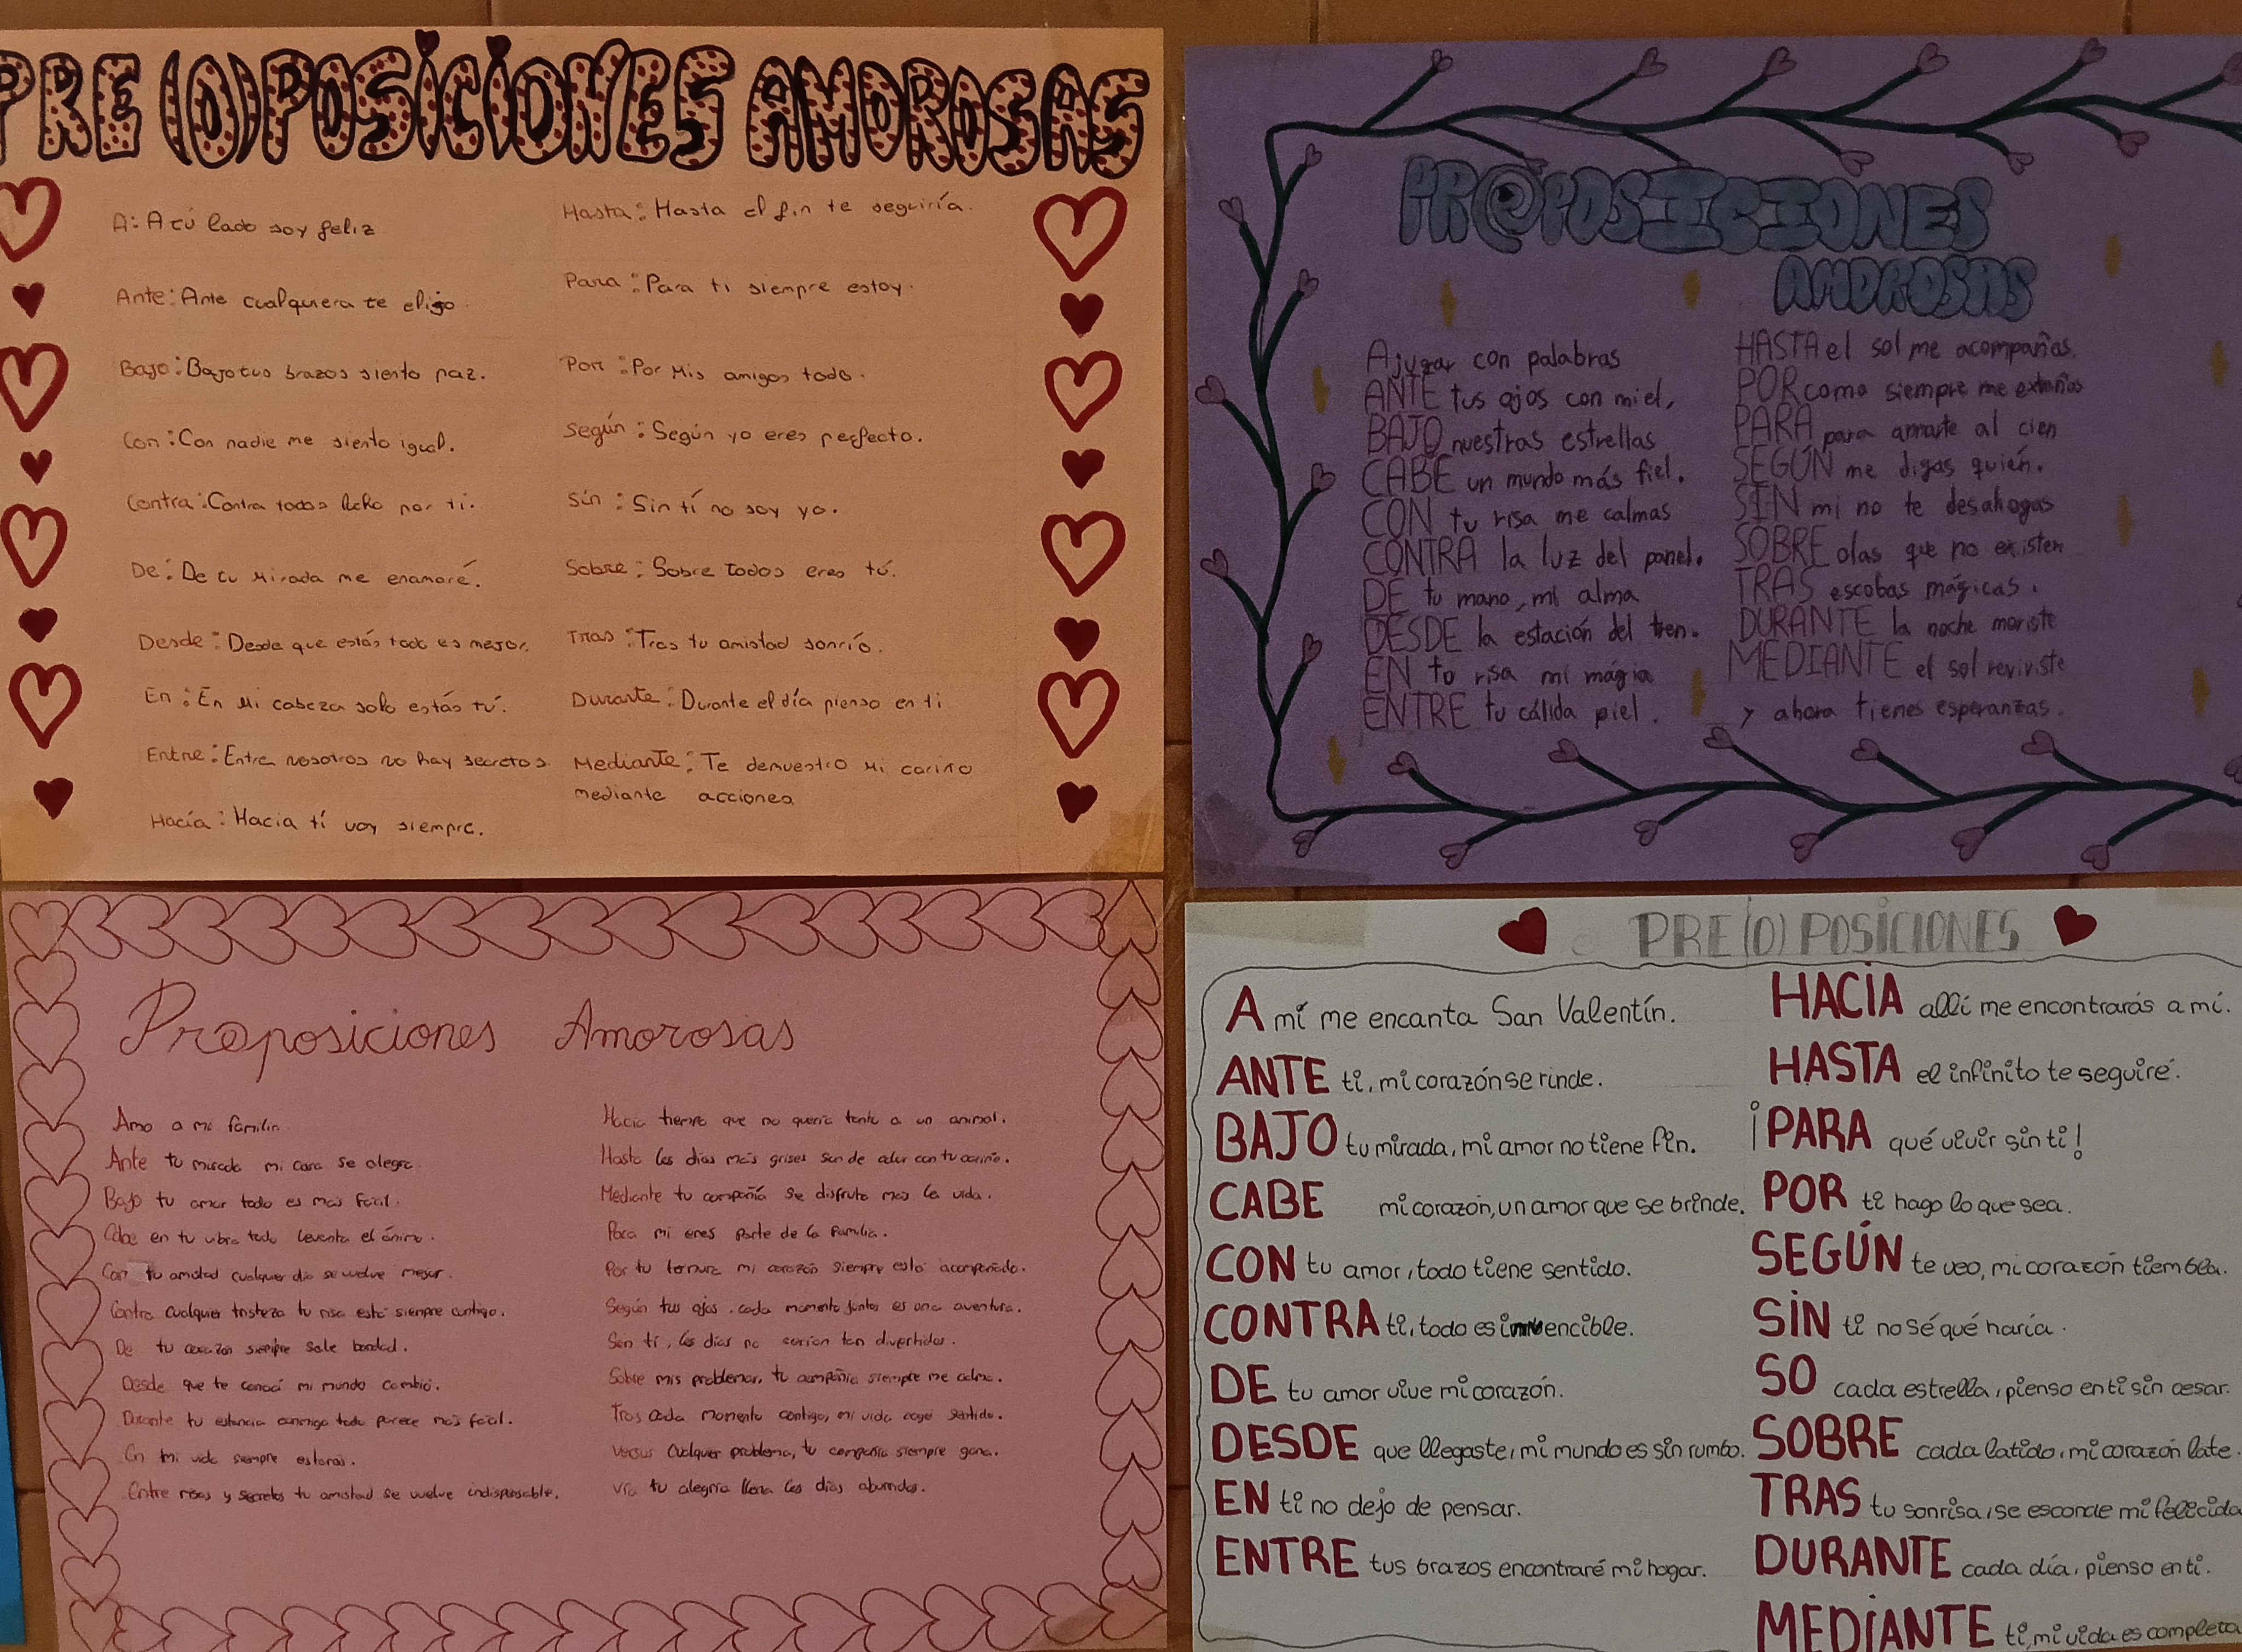 PRE(O)POSICIONES AMOROSAS
A: A tú lado soy feliz
Ante: Ante cualquiera te elijo.
Bajo: Bajo tus brazos siento paz.
Con: Con nadie me siento igual.
Contra: Contra todos lucho por ti.
De: De tu mirada me enamoré.
Desde: Desde que estás todo es mejor.
En: En mi cabeza solo estás tú.
Entre: Entre nosotros no hay secretos.
Hacía: Hacia tí voy siempre.
Hasta: Hasta el fin te seguiría.
Para: Para ti siempre estoy.
Por: Por mis amigos todo.
Según: Según yo eres perfecto.
Sin: Sin tí no soy yo.
Sobre: Sobre todos eres tú.
Tras: Tras tu amistad sonrío.
Durante: Durante el día pienso en ti
Mediante: Te demuestro mi cariño
mediante acciones
PR@POSICIONES
AMOROSAS
A jugar con palabras
ANTE tus ojos con miel,
BAJO nuestras estrellas
CABE un mundo más fiel.
CON tu risa me calmas
CONTRA la luz del panel.
DE tu mano, mi alma
DESDE la estación del tren.
EN tu risa mi mágia
ENTRE tu cálida piel.
HASTA el sol me acompañas.
POR como siempre me extrañas
PARA para amarte al cien
SEGÚN me digas quién.
SIN mi no te desahogas
SOBRE olas que no existen
TRAS escobas mágicas.
DURANTE la noche moriste
MEDIANTE el sol reviviste
y ahora tienes esperanzas.
Pr@posiciones Amorosas
Amo a mi familia.
Ante tu mirada mi cara se alegra.
Bajo tu amor todo es más fácil.
Cabe en tu vibra todo levanta el ánimo.
Con tu amistad cualquier día se vuelve mejor.
Contra cualquier tristeza tu risa está siempre contigo.
De tu corazón siempre sale bondad.
Desde que te conocí mi mundo cambió.
Durante tu estancia conmigo todo parece más fácil.
En mi vida siempre estarás.
Entre risas y secretos tu amistad se vuelve indispensable.
Hacía tiempo que no quería tanto a un animal.
Hasta los días más grises son de color con tu cariño.
Mediante tu compañía se disfruta más la vida.
Para mi eres parte de la familia.
Por tu ternura mi corazón siempre está acompañado.
Según tus ojos, cada momento juntos es una aventura.
Sin tí, los días no serían tan divertidos.
Sobre mis problemas, tu compañía siempre me calma.
Tras cada momento contigo, mi vida coge sentido.
Versus cualquier problema, tu compañía siempre gana.
Vía tu alegría llena los días aburridos.
PRE(O)POSICIONES
A mí me encanta San Valentín.
ANTE ti, mi corazón se rinde.
BAJO tu mirada, mi amor no tiene fin.
CABE mi corazón, un amor que se brinde.
CON tu amor, todo tiene sentido.
CONTRA ti, todo es invencible.
DE tu amor vive mi corazón.
DESDE que llegaste, mi mundo es sin rumbo.
EN ti no dejo de pensar.
ENTRE tus brazos encontraré mi hogar.
HACIA allí me encontrarás a mí.
HASTA el infinito te seguiré.
¡PARA qué vivir sin ti!
POR ti hago lo que sea.
SEGÚN te veo, mi corazón tiembla.
SIN ti no sé qué haría.
SO cada estrella, pienso en ti sin cesar.
SOBRE cada latido, mi corazón late.
TRAS tu sonrisa, se esconde mi felicida
DURANTE cada día, pienso en ti.
MEDIANTE ti, mi vida es completa